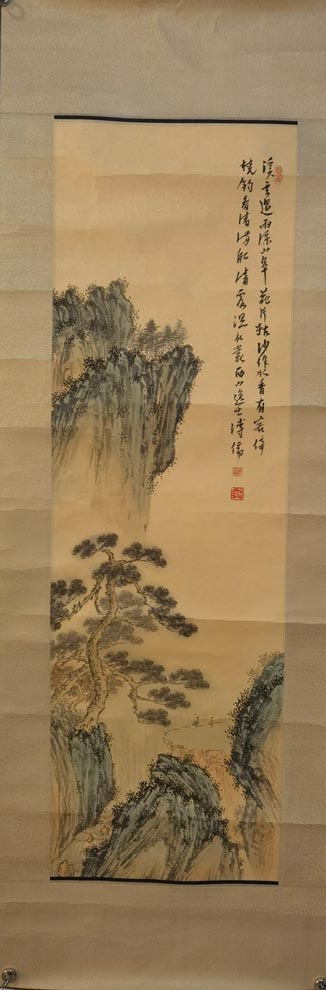 溪雲過雨添山翠花片粘沙作水香有客停
橈釣春渚滿船清露濕衣裳西山逸士溥儒